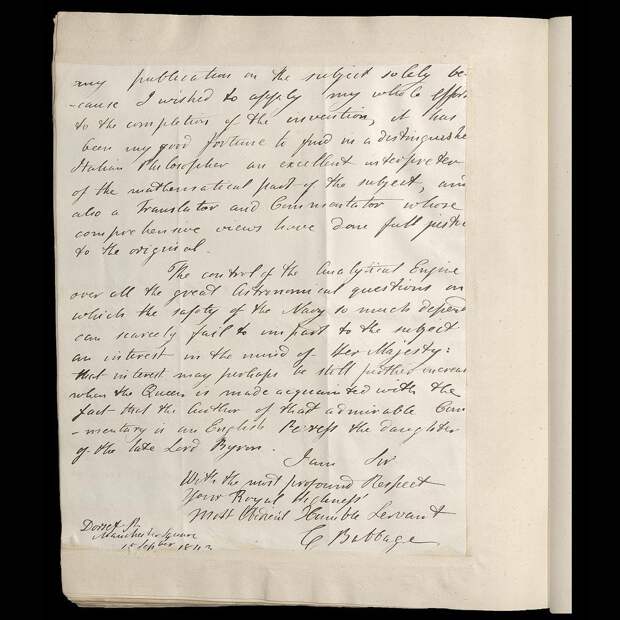 my publication on the subject solely be-
-cause I wished to apply my whole effort
to the completion of the invention, it has
been my good fortune to find in a distinguishe
Italian Philosopher an excellent interpreter
of the mathematical part of the subject, and
also a Translator and Commentator whose
comprehensive views have done full justi
to the original.
The control of the Analytical Engine
over all the great Astronomical questions on
which the safety of the Navy so much depend
can scarcely fail to impart to the subject
an interest in the mind of Her Majesty:
that interest may perhaps be still further increas
when the Queen is made acquainted with the
fact that the Author of that admirable Com
-mentary is an English Peeress the daughter
of the late Lord Byron.
I am Sir
With the most profound Respect
Your Royal Highness'
Most Obedient Humble Servant
C Babbage
Dorset St
Manchester Square
September